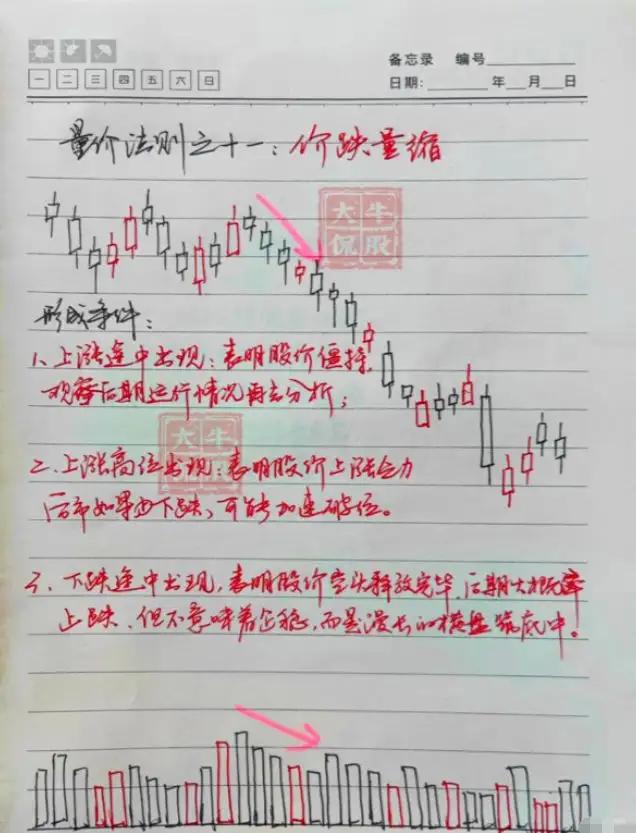 备忘录 编号
一 二 三 四 五 六 日
日期: 年 月 日
量价法则之十一：价跌量缩
大牛
侃股
形成条件：
1、上涨途中出现：表明股价僵持，
观察后期运行情况再去分析；
大牛
侃股
2、上涨高位出现：表明股价上涨乏力
后市如果 下跌、可能加速破位。
3、下跌途中出现，表明股价空头释放完毕，后期大概率
止跌、但不意味着企稳，而是漫长的横盘筑底中！